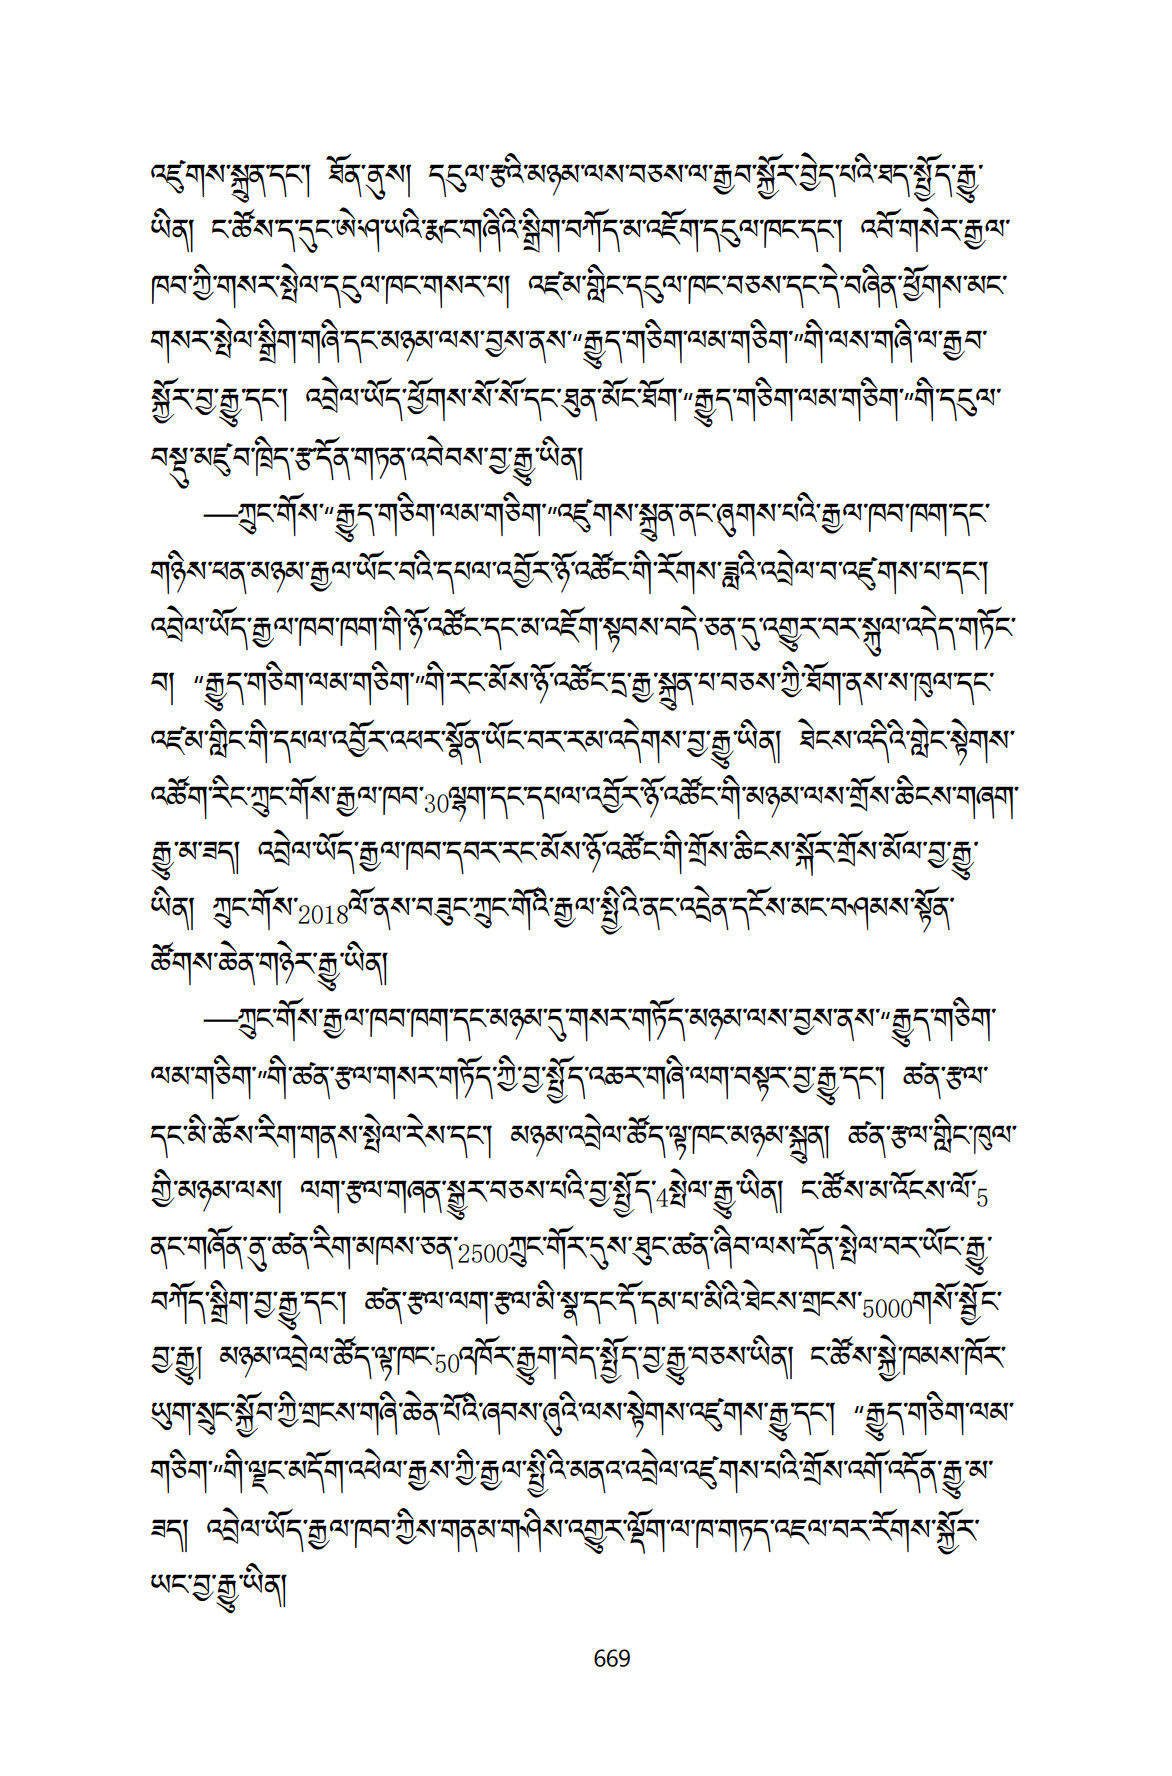 འཛུགས་སྐྲུན་དང་། ཐོན་ནུས། དངུལ་རྩའི་མཉམ་ལས་བཅས་ལ་རྒྱབ་སྐྱོར་བྱེད་པའི་ཐད་སྤྱོད་རྒྱུ་
ཡིན། ང་ཚོས་ད་དུང་ཨེ་ཤ་ཡའི་རྨང་གཞིའི་སྒྲིག་བཀོད་མ་འཇོག་དངུལ་ཁང་དང་། འབོ་གསེར་རྒྱལ་
ཁབ་ཀྱི་གསར་སྤེལ་དངུལ་ཁང་གསར་པ། འཛམ་གླིང་དངུལ་ཁང་བཅས་དང་དེ་བཞིན་ཕྱོགས་མང་
གསར་སྤེལ་སྒྲིག་གཞི་དང་མཉམ་ལས་བྱས་ནས་“རྒྱུད་གཅིག་ལམ་གཅིག་”གི་ལས་གཞི་ལ་རྒྱབ་
སྐྱོར་བྱ་རྒྱུ་དང་། འབྲེལ་ཡོད་ཕྱོགས་སོ་སོ་དང་ཐུན་མོང་ཐོག་“རྒྱུད་གཅིག་ལམ་གཅིག་”གི་དངུལ་
བསྡུ་མཛུབ་ཁྲིད་རྩ་དོན་གཏན་འབེབས་བྱ་རྒྱུ་ཡིན།
—ཀྲུང་གོས་“རྒྱུད་གཅིག་ལམ་གཅིག་”འཛུགས་སྐྲུན་ནང་ཞུགས་པའི་རྒྱལ་ཁབ་ཁག་དང་
གཉིས་ཕན་མཉམ་རྒྱལ་ཡོང་བའི་དཔལ་འབྱོར་ཉོ་འཚོང་གི་རོགས་ཟླའི་འབྲེལ་བ་འཛུགས་པ་དང་།
འབྲེལ་ཡོད་རྒྱལ་ཁབ་ཁག་གི་ཉོ་འཚོང་དང་མ་འཇོག་སྟབས་བདེ་ཅན་དུ་འགྱུར་བར་སྐུལ་འདེད་གཏོང་
བ། “རྒྱུད་གཅིག་ལམ་གཅིག་”གི་རང་མོས་ཉོ་འཚོང་དྲ་རྒྱ་སྐྲུན་པ་བཅས་ཀྱི་ཐོག་ནས་ས་ཁུལ་དང་
འཛམ་གླིང་གི་དཔལ་འབྱོར་འཕར་སྣོན་ཡོང་བར་རམ་འདེགས་བྱ་རྒྱུ་ཡིན། ཐེངས་འདིའི་གླེང་སྟེགས་
འཚོག་རིང་ཀྲུང་གོས་རྒྱལ་ཁབ་30ལྷག་དང་དཔལ་འབྱོར་ཉོ་འཚོང་གི་མཉམ་ལས་གྲོས་ཆིངས་གཞག་
རྒྱུ་མ་ཟད། འབྲེལ་ཡོད་རྒྱལ་ཁབ་དབར་རང་མོས་ཉོ་འཚོང་གི་གྲོས་ཆིངས་སྐོར་གྲོས་མོལ་བྱ་རྒྱུ་
ཡིན། ཀྲུང་གོས་2018ལོ་ནས་བཟུང་ཀྲུང་གོའི་རྒྱལ་སྤྱིའི་ནང་འདྲེན་དངོས་མང་བཤམས་སྟོན་
ཚོགས་ཆེན་གཉེར་རྒྱུ་ཡིན།
—ཀྲུང་གོས་རྒྱལ་ཁབ་ཁག་དང་མཉམ་དུ་གསར་གཏོད་མཉམ་ལས་བྱས་ནས་“རྒྱུད་གཅིག་
ལམ་གཅིག་”གི་ཚན་རྩལ་གསར་གཏོད་ཀྱི་བྱ་སྤྱོད་འཆར་གཞི་ལག་བསྟར་བྱ་རྒྱུ་དང་། ཚན་རྩལ་
དང་མི་ཆོས་རིག་གནས་སྤེལ་རེས་དང་། མཉམ་འབྲེལ་ཚོད་ལྟ་ཁང་མཉམ་སྐྲུན། ཚན་རྩལ་གླིང་ཁུལ་
གྱི་མཉམ་ལས། ལག་རྩལ་གཞན་སྒྱུར་བཅས་པའི་བྱ་སྤྱོད་4སྤེལ་རྒྱུ་ཡིན། ང་ཚོས་མ་འོངས་ལོ་5
ནང་གཞོན་ནུ་ཚན་རིག་མཁས་ཅན་2500ཀྲུང་གོར་དུས་ཐུང་ཚན་ཞིབ་ལས་དོན་སྤེལ་བར་ཡོང་རྒྱུ་
བཀོད་སྒྲིག་བྱ་རྒྱུ་དང་། ཚན་རྩལ་ལག་རྩལ་མི་སྣ་དང་དོ་དམ་པ་མིའི་ཐེངས་གྲངས་5000གསོ་སྦྱོང་
བྱ་རྒྱུ། མཉམ་འབྲེལ་ཚོད་ལྟ་ཁང་50འཁོར་རྒྱུག་བེད་སྤྱོད་བྱ་རྒྱུ་བཅས་ཡིན། ང་ཚོས་སྐྱེ་ཁམས་ཁོར་
ཡུག་སྲུང་སྐྱོབ་ཀྱི་གྲངས་གཞི་ཆེན་པོའི་ཞབས་ཞུའི་ལས་སྟེགས་འཛུགས་རྒྱུ་དང་། “རྒྱུད་གཅིག་ལམ་
གཅིག་”གི་ལྗང་མདོག་འཕེལ་རྒྱས་ཀྱི་རྒྱལ་སྤྱིའི་མནའ་འབྲེལ་འཛུགས་པའི་གྲོས་འགོ་འདོན་རྒྱུ་མ་
ཟད། འབྲེལ་ཡོད་རྒྱལ་ཁབ་ཀྱིས་གནམ་གཤིས་འགྱུར་ལྡོག་ལ་ཁ་གཏད་འཇལ་བར་རོགས་སྐྱོར་
ཡང་བྱ་རྒྱུ་ཡིན།
669